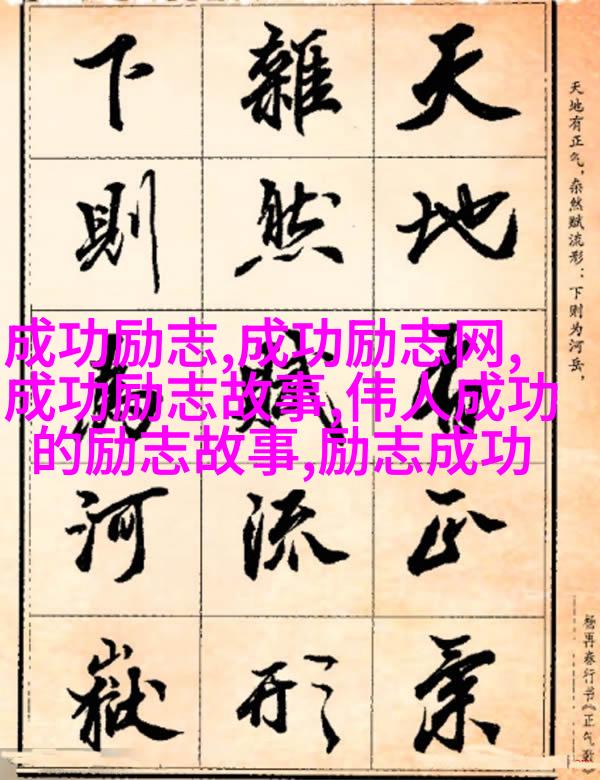 天地有正气，杂然赋流形：下则为河岳，
杨再春行书《正气歌》
天地有正氣
雜然賦流形
下則為河嶽
成功励志,成功励志网,
成功励志故事,伟人成功
的励志故事,励志成功